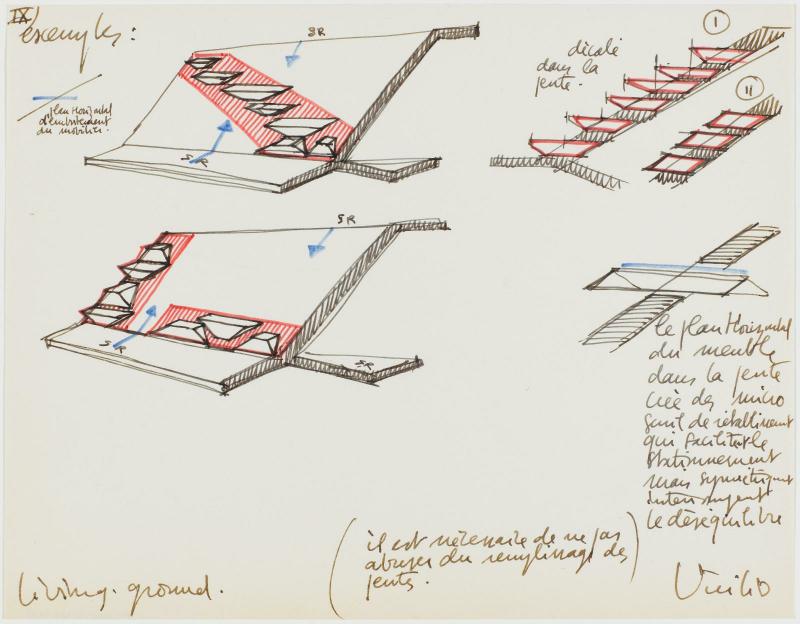 IX
exemples :
plan Horizontal
d'emboitement
du mobilier.
SR
SR
décalé
dans la
pente.
I
II
SR
SR
SR
le plan Horizontal
du meuble
dans la pente
crée des micro
seuil de rétablissement
qui facilitent le
stationnement
mais
interrompent
le déséquilibre
(il est nécessaire de ne pas
abuser du remplissage des
pentes.)
living. ground.
Virilio